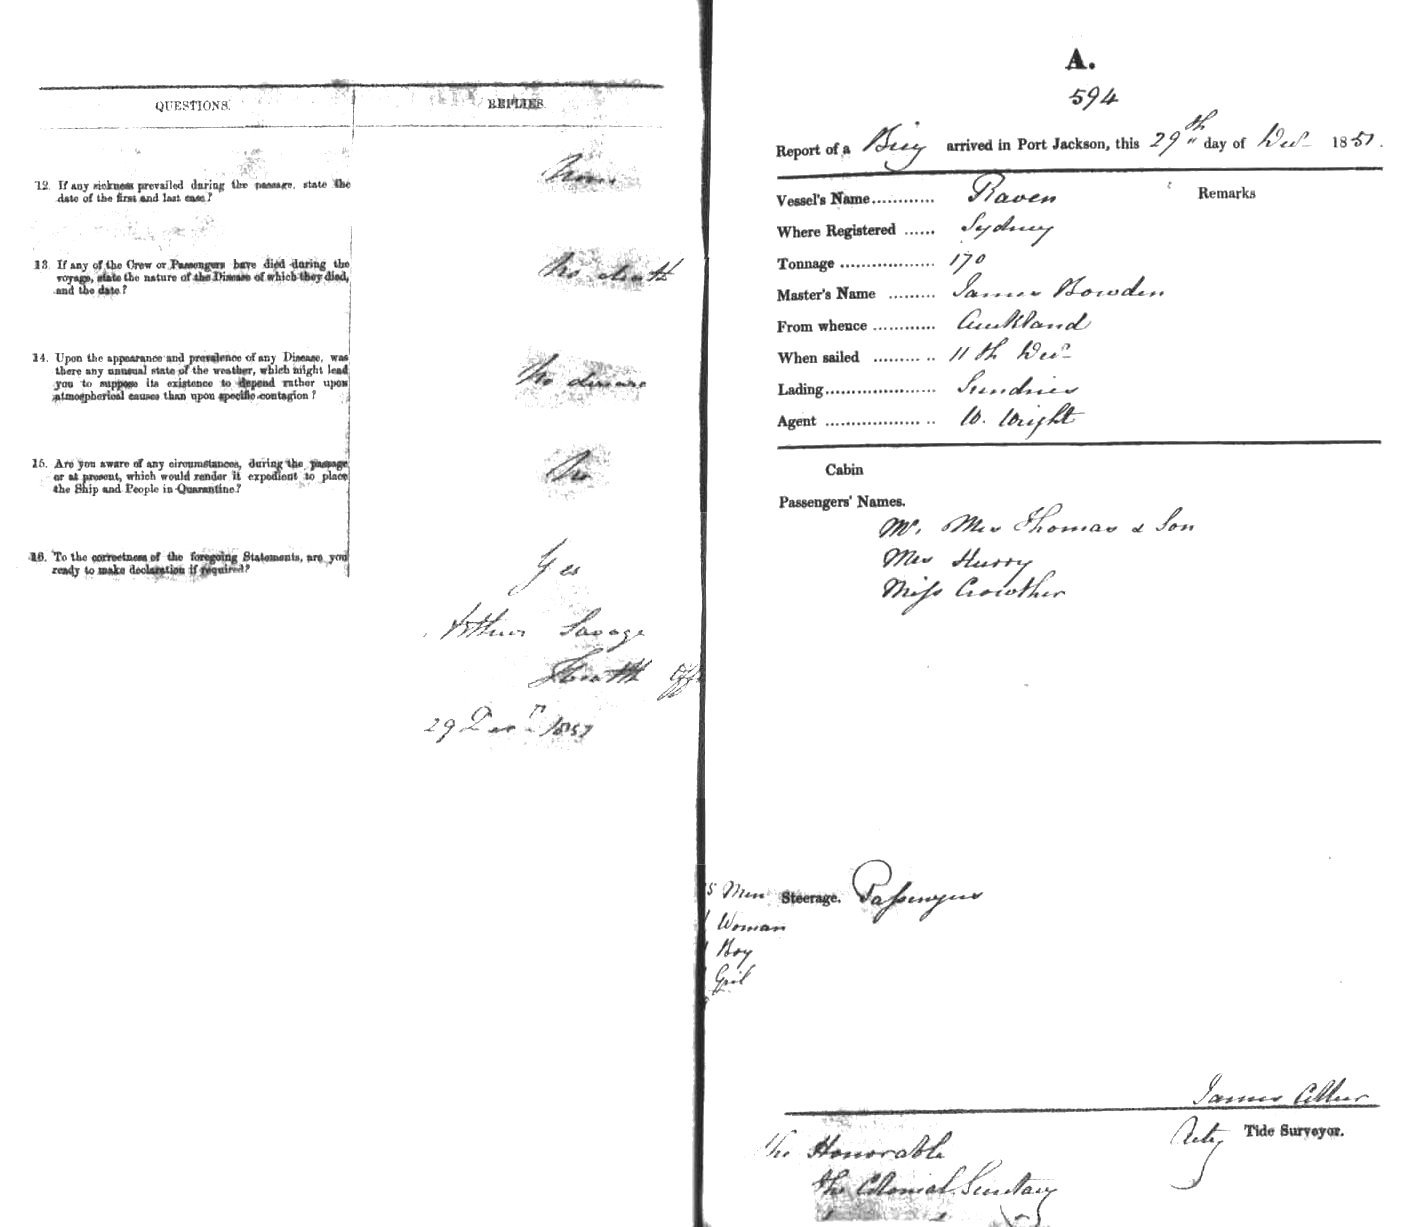 QUESTIONS. REPLIES.
12. If any sickness prevailed during the passage, state the
date of the first and last case?
None
13. If any of the Crew or Passengers have died during the
voyage, state the nature of the Disease of which they died,
and the date?
No death
14. Upon the appearance and prevalence of any Disease, was
there any unusual state of the weather, which might lead
you to suppose its existence to depend rather upon
atmospherical causes than upon specific contagion?
No disease
15. Are you aware of any circumstances, during the passage
or at present, which would render it expedient to place
the Ship and People in Quarantine?
No
16. To the correctness of the foregoing Statements, are you
ready to make declaration if required?
Yes
Arthur Savage
Health Off
29 Decr 1851
A.
594
Report of a Brig arrived in Port Jackson, this 29th day of Decr 1851.
Vessel's Name............ Raven Remarks
Where Registered ...... Sydney
Tonnage .................. 170
Master's Name ......... James Bowden
From whence ............ Auckland
When sailed ......... .. 11th Decr
Lading..................... Sundries
Agent .................. .. W. Wright
Cabin
Passengers' Names.
Mr. Mrs Thomas & Son
Mrs Hurry
Miss Crowther
5 Men Steerage. Passengers
1 Woman
1 Boy
1 Girl
James
Actg Tide Surveyor.
The Honorable
the Colonial Secretary